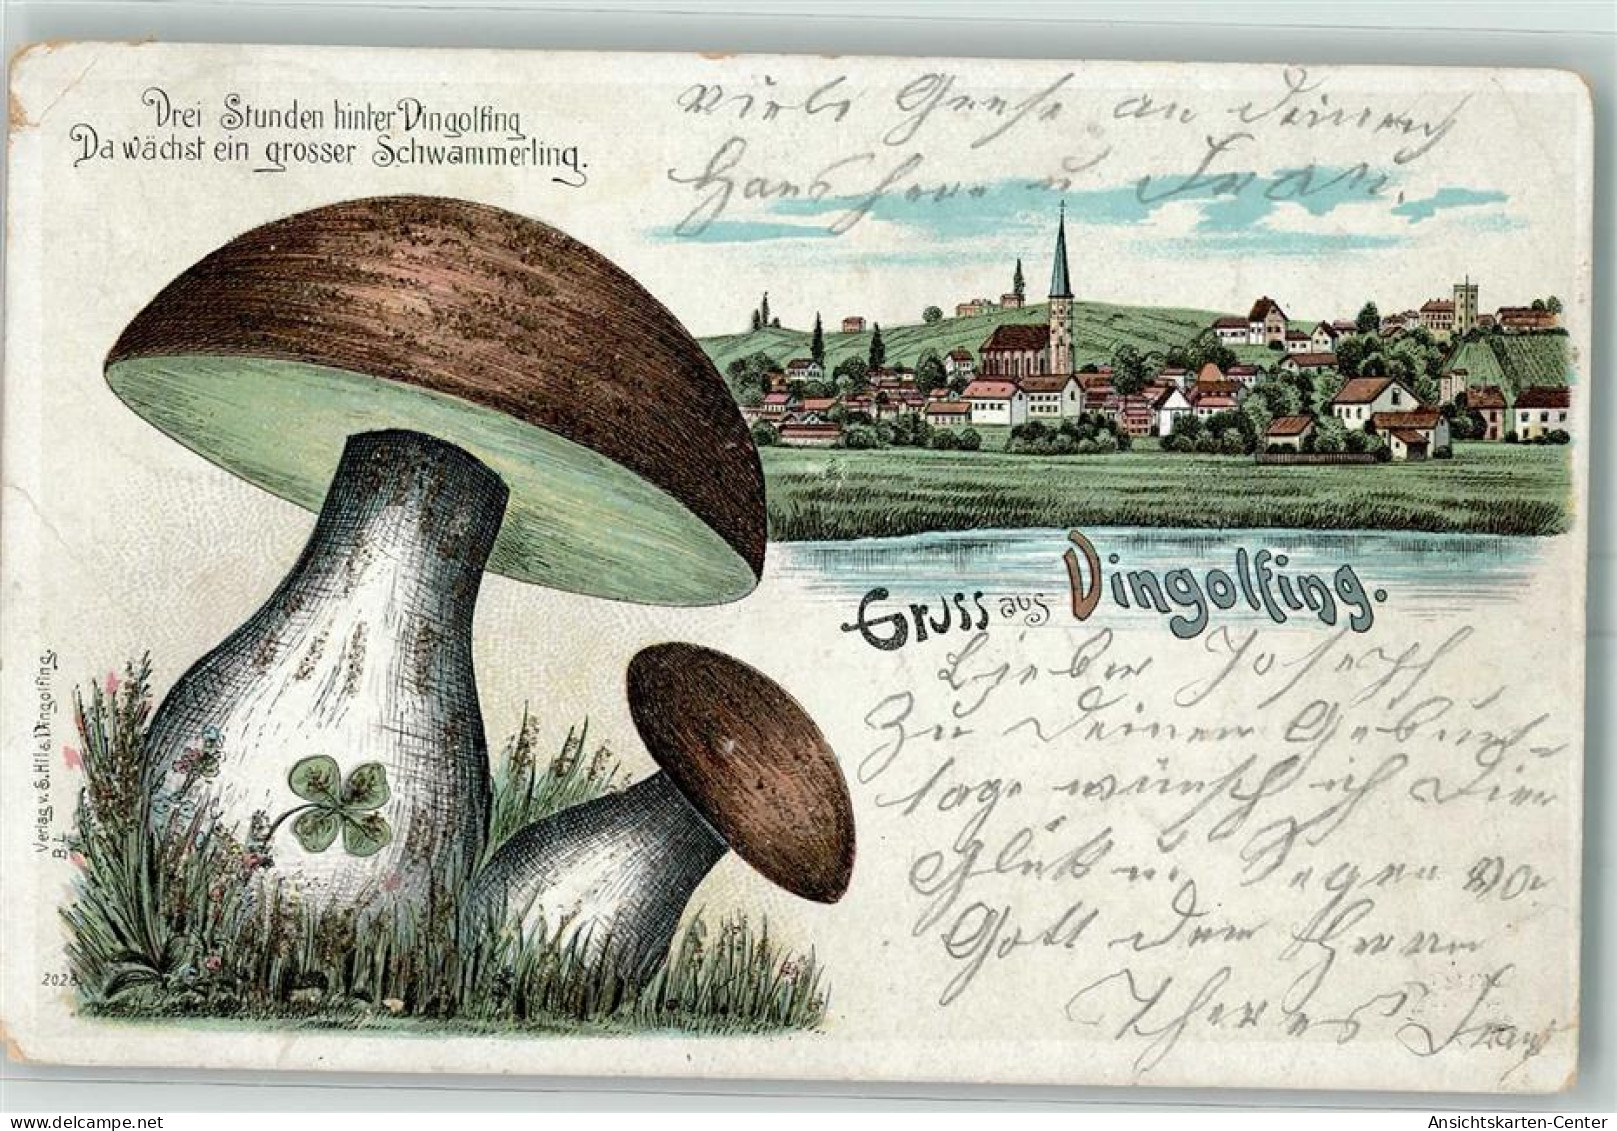 Drei Stunden hinter Dingolfing
Da wächst ein grosser Schwammerling.
Viele Grüße an Deinen
Hausherrn u Frau.
Gruss aus Dingolfing.
Lieber Joseph
Zu Deinem Geburts-
tage wünsch ich Dir
Glück u. Segen von
Gott dem Herrn
Theres
Verlag v. S. Hil a. Dingolfing.
B.L.
2026
Ansichtskarten-Center